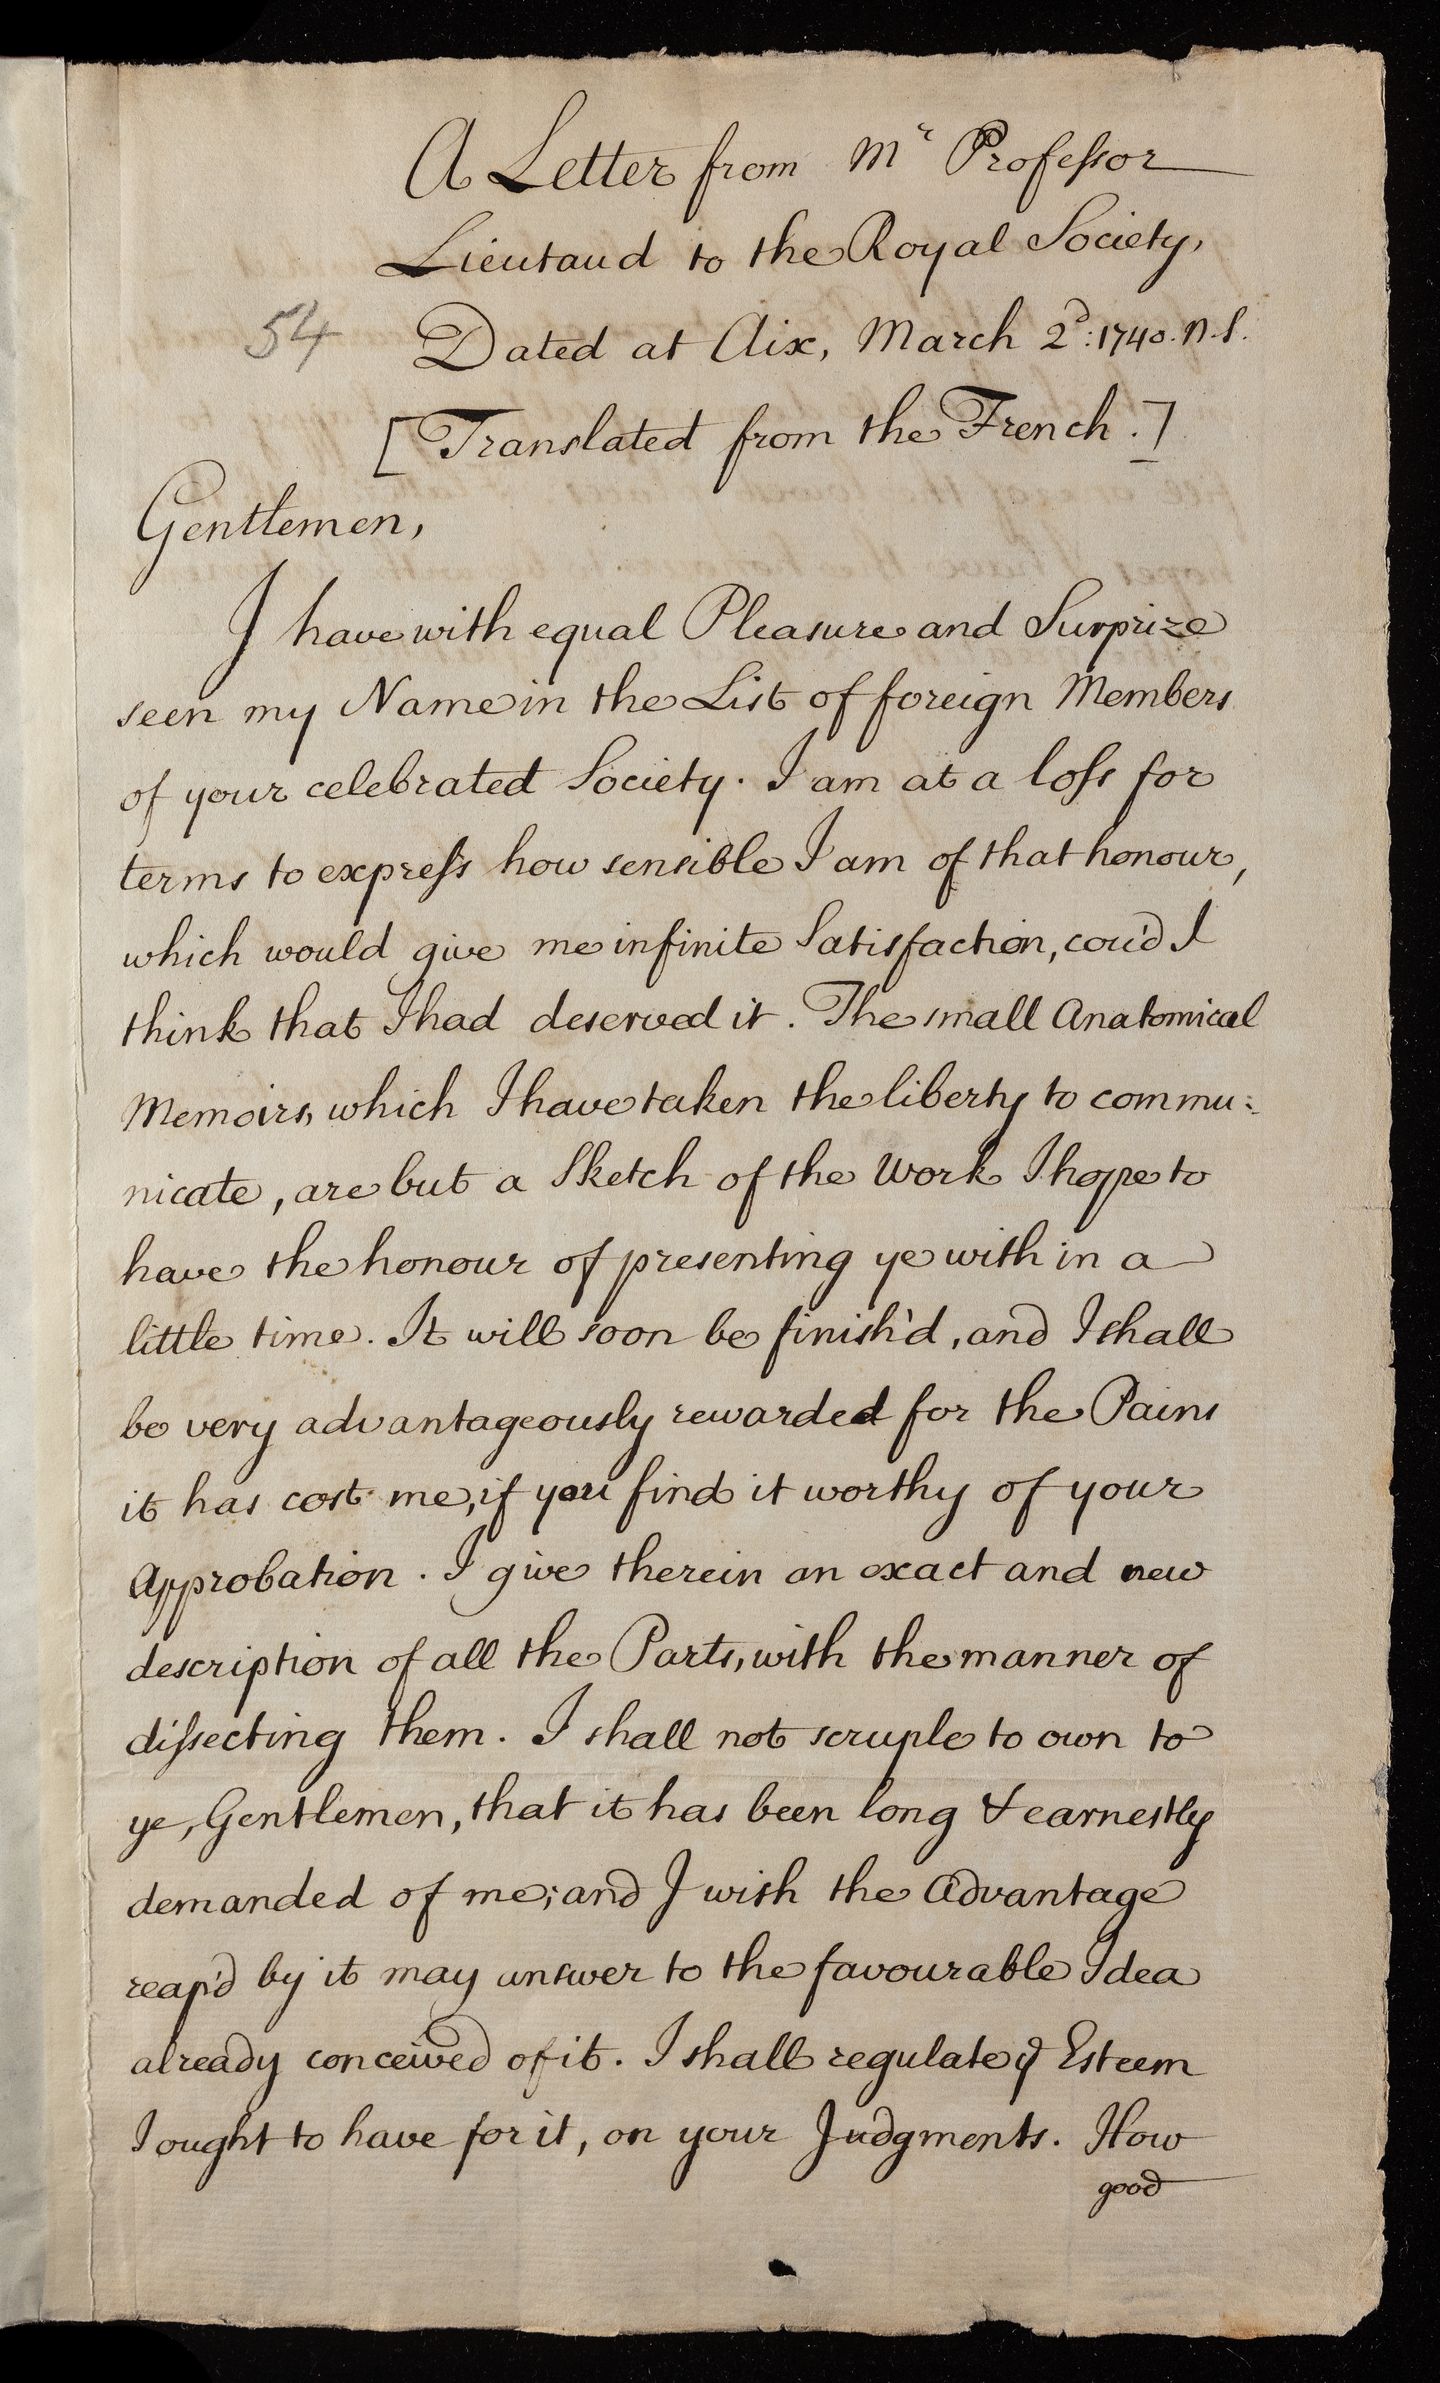 A Letter from Mr Professor
Lieutaud to the Royal Society,
54
Dated at Aix, March 2d: 1740. N.S.
[Translated from the French.]
Gentlemen,
I have with equal Pleasure and Surprize
seen my Name in the List of foreign Members
of your celebrated Society. I am at a loss for
terms to express how sensible I am of that honour,
which would give me infinite Satisfaction, cou'd I
think that I had deserved it. The small Anatomical
Memoirs, which I have taken the liberty to commu:
nicate, are but a Sketch of the Work I hope to
have the honour of presenting ye with in a
little time. It will soon be finish'd, and I shall
be very advantageously rewarded for the Pains
it has cost me, if you find it worthy of your
Approbation. I give therein an exact and new
description of all the Parts, with the manner of
dissecting them. I shall not scruple to own to
ye, Gentlemen, that it has been long & earnestly
demanded of me; and I wish the Advantage
reap'd by it may answer to the favourable Idea
already conceived of it. I shall regulate ye Esteem
I ought to have for it, on your Judgments. How
good